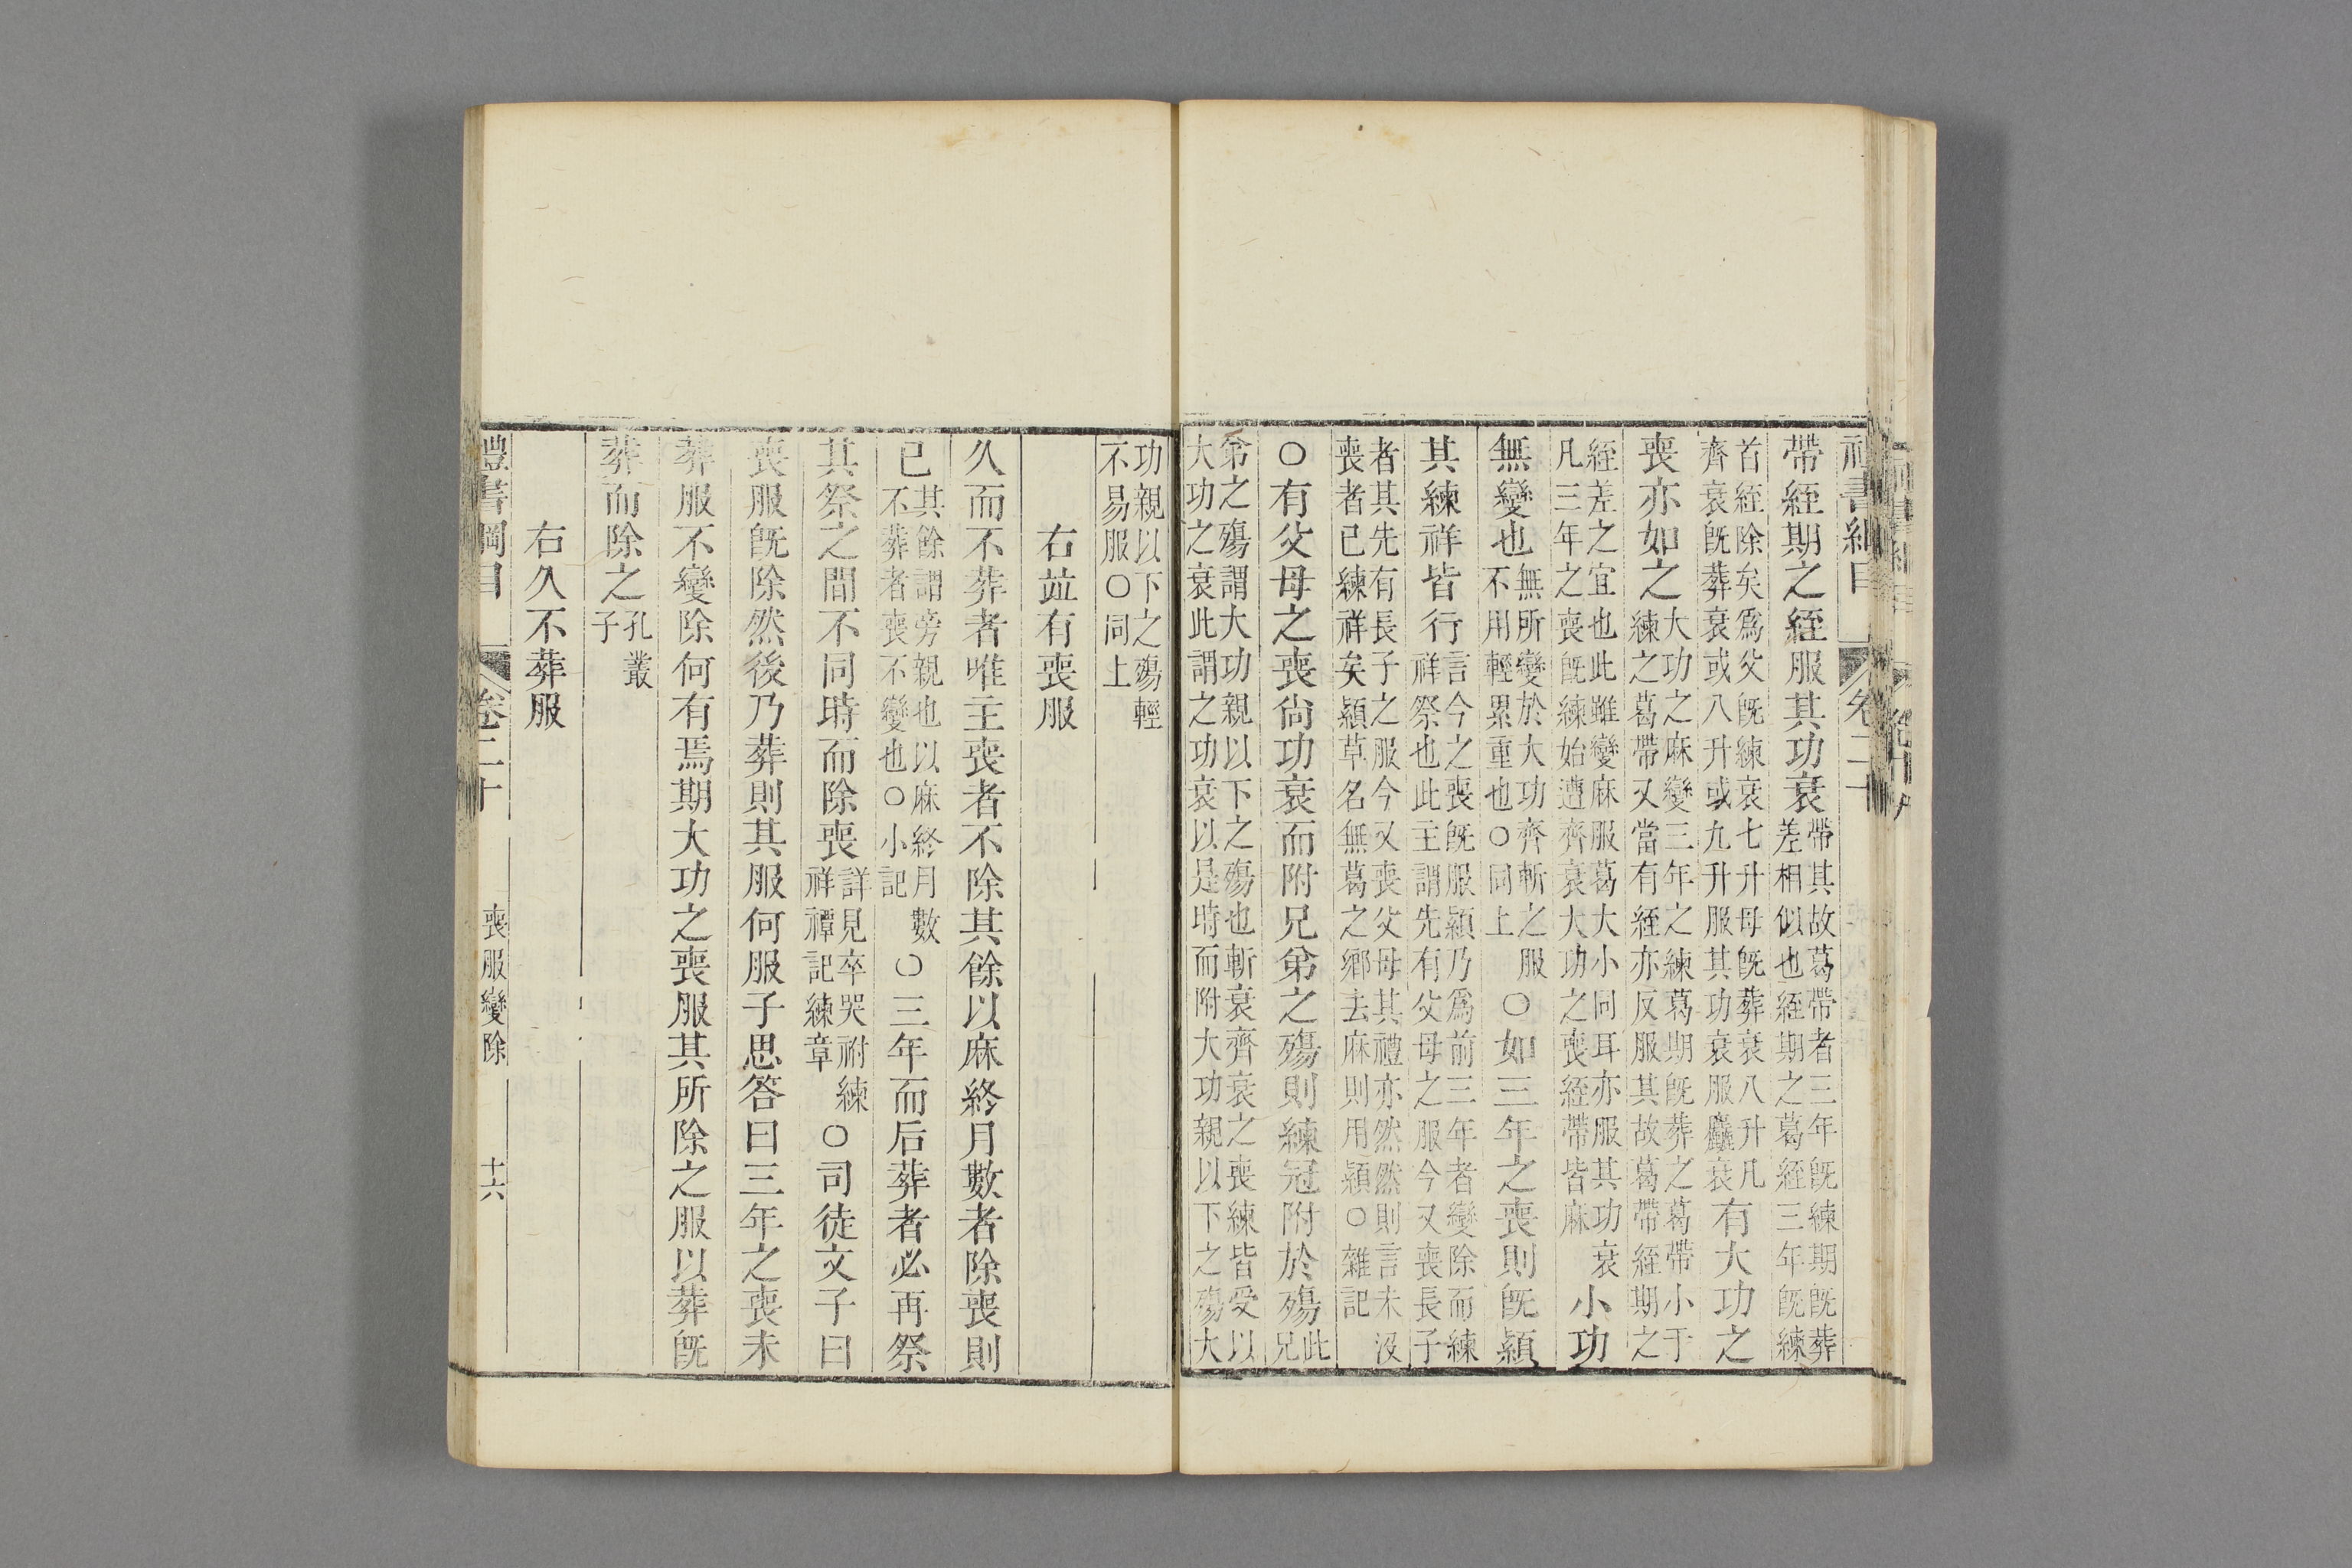 帶絰期之絰服其功衰帶其故葛帶者三年旣練期旣葬差相似也絰期之葛絰三年旣練
首絰除矣爲父旣練衰七升母旣葬衰八升凡齊衰旣葬衰或八升或九升服其功衰服麤衰有大功之
喪亦如之大功之麻變三年之練葛期旣葬之葛帶小于練之葛帶又當有絰亦反服其故葛帶絰期之
絰差之宜也此雖變麻服葛大小同耳亦服其功衰凡三年之喪旣練始遭齊衰大功之喪絰帶皆麻小功
無變也無所變於大功齊斬之服不用輕累重也○同上○如三年之喪則旣顈
其練祥皆行言今之喪旣服顈乃爲前三年者變除而練祥祭也此主謂先有父母之服今又喪長子
者其先有長子之服今又喪父母其禮亦然然則言未沒喪者已練祥矣顈草名無葛之鄉去麻則用顈○雜記
○有父母之喪尙功衰而附兄弟之殤則練冠附於殤此兄
弟之殤謂大功親以下之殤也斬衰齊衰之喪練皆受以大功之衰此謂之功衰以是時而附大功親以下之殤大
功親以下之殤輕不易服○同上
右並有喪服
久而不葬者唯主喪者不除其餘以麻終月數者除喪則
已其餘謂旁親也以麻終月數不葬者喪不變也○小記○三年而后葬者必再祭
其祭之間不同時而除喪詳見卒哭祔練祥禫記練章○司徒文子曰
喪服旣除然後乃葬則其服何服子思答曰三年之喪未
葬服不變除何有焉期大功之喪服其所除之服以葬旣
葬而除之孔叢子
右久不葬服
禮書綱目 卷二十 喪服變除 十六